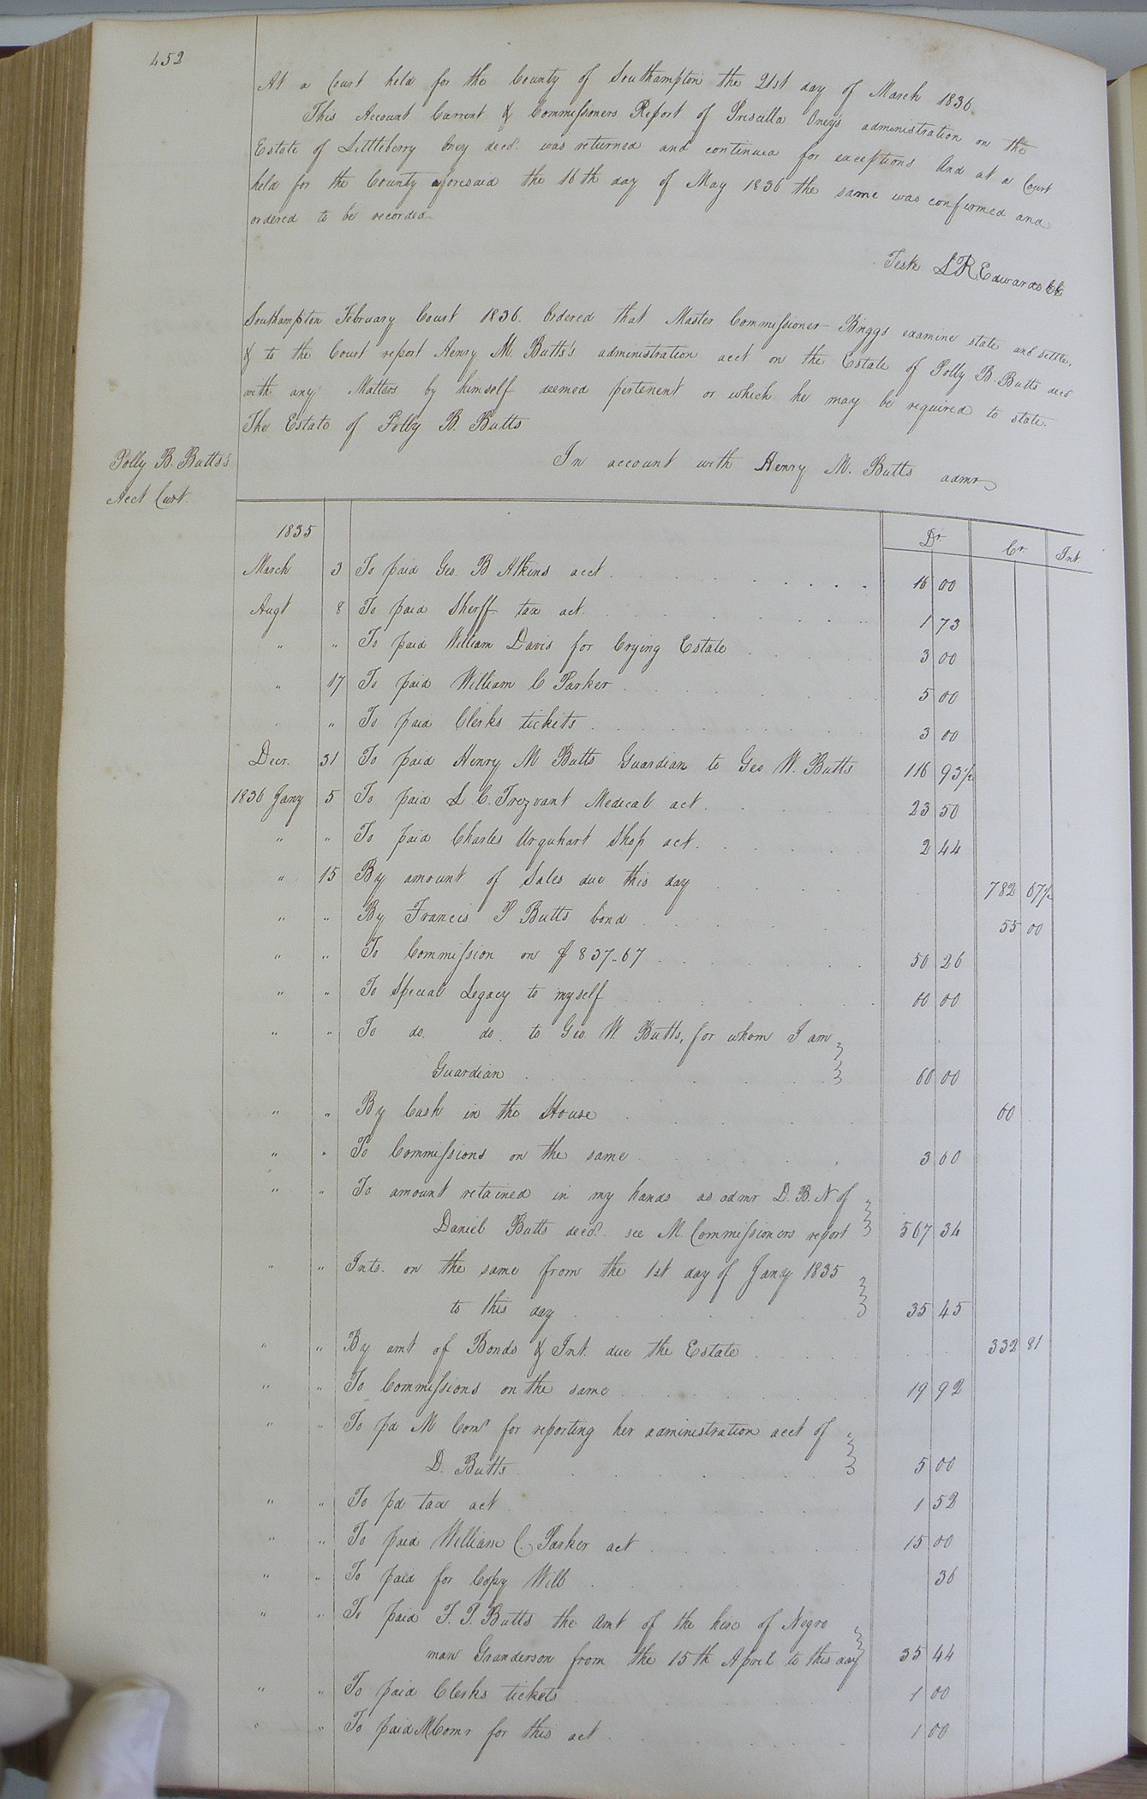 452
At a Court held for the County of Southampton the 21st day of March 1836.
This Account Current & Commissioners Report of Priscilla Oney's administration on the
Estate of Littleberry Oney decd. was returned and continued for exceptions And at a Court
held for the County aforesaid the 16th day of May 1836 the same was confirmed and
ordered to be recorded
Teste L R Edwards Clk
Southampton February Court 1836. Ordered that Master Commissioner Briggs examine state and settle,
& to the Court report Henry M. Butts's administration acct on the Estate of Polly B. Butts decd
with any Matters by himself deemed pertenent or which he may be required to state.
The Estate of Polly B. Butts
Polly B. Butts's
Acct Curt.
In account with Henry M. Butts admr
1835 Dr Cr Int
March 3 To paid Geo. B Atkins acct 16 00
Augt 8 To paid Sherff tax act. 1 73
" " To paid William Davis for Crying Estate 3 00
" 17 To paid William C Parker 5 00
" To paid Clerks tickets 3 00
Decr. 31 To paid Henry M Butts Guardian to Geo W. Butts 116 93½
1836 Jany 5 To paid L C. Trezvant Medical act. 23 50
" " To paid Charles Urquhart Shop act. 2 44
" 15 By amount of Sales due this day 782 67½
" " By Francis P Butts bond 55 00
" " To Commission on $837-67 50 26
" " To Special Legacy to myself 60 00
" " To do. do. to Geo W. Butts, for whom I am
Guardian 60 00
" " By Cash in the House 60
" " To Commissions on the same 3 60
" " To amount retained in my hands as admr D. B. N of
Daniel Butts decd. see M. Commissioners report 567 34
" " Ints. on the same from the 1st day of Jany 1835
to this day 35 45
" " By amt of Bonds & Int. due the Estate 332 81
" " To Commissions on the same 19 92
" " To pd M Comr for reporting her administration acct of
D. Butts 5 00
" " To pd tax act 1 52
" " To paid William C. Parker act 15 00
" " To paid for Copy Will 36
" " To paid F. P. Butts the Amt of the hire of Negro
man Granderson from the 15th April to this day 35 44
" " To paid Clerks tickets 1 00
" " To paid M Comr for this act 1 00